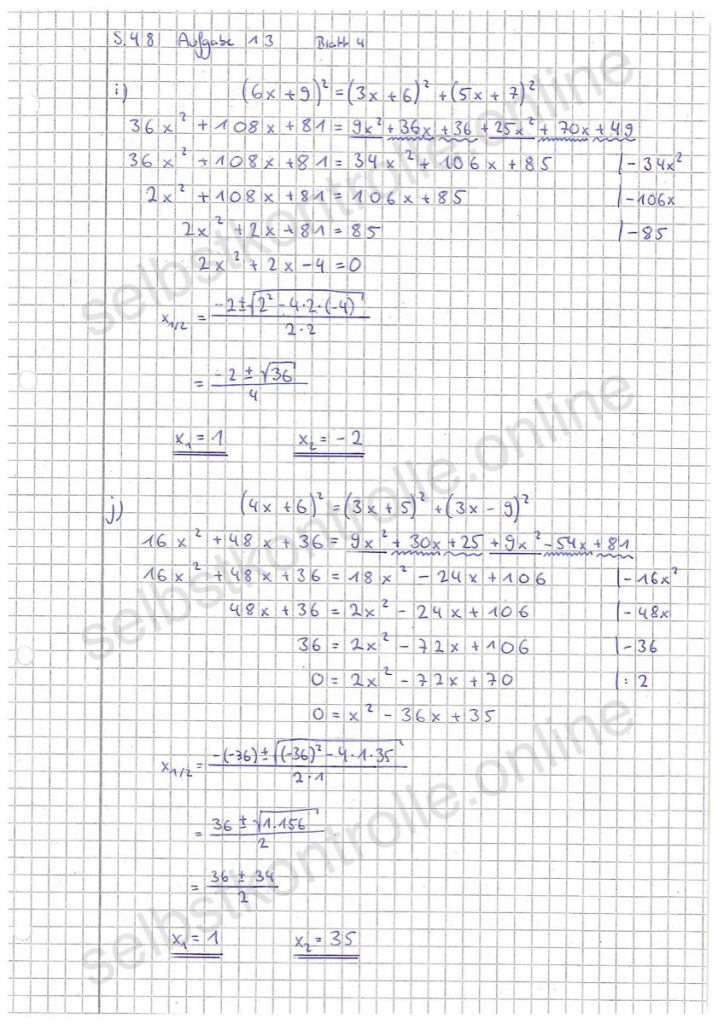 S.48 Aufgabe 13 Blatt 4
i) (6x + 9)² = (3x + 6)² + (5x + 7)²
36x² + 108x + 81 = 9x² + 36x + 36 + 25x² + 70x + 49
36x² + 108x + 81 = 34x² + 106x + 85 |-34x²
2x² + 108x + 81 = 106x + 85 |-106x
2x² + 2x + 81 = 85 |-85
2x² + 2x - 4 = 0
x₁/₂ = (-2 ± √(2² - 4·2·(-4))) / (2·2)
= (-2 ± √36) / 4
x₁ = 1 x₂ = -2
j) (4x + 6)² = (3x + 5)² + (3x - 9)²
16x² + 48x + 36 = 9x² + 30x + 25 + 9x² - 54x + 81
16x² + 48x + 36 = 18x² - 24x + 106 |-16x²
48x + 36 = 2x² - 24x + 106 |-48x
36 = 2x² - 72x + 106 |-36
0 = 2x² - 72x + 70 |:2
0 = x² - 36x + 35
x₁/₂ = (-(-36) ± √((-36)² - 4·1·35)) / (2·1)
= (36 ± √1.156) / 2
= (36 ± 34) / 2
x₁ = 1 x₂ = 35
selbstkontrolle.online
selbstkontrolle.online
selbstkontrolle.online